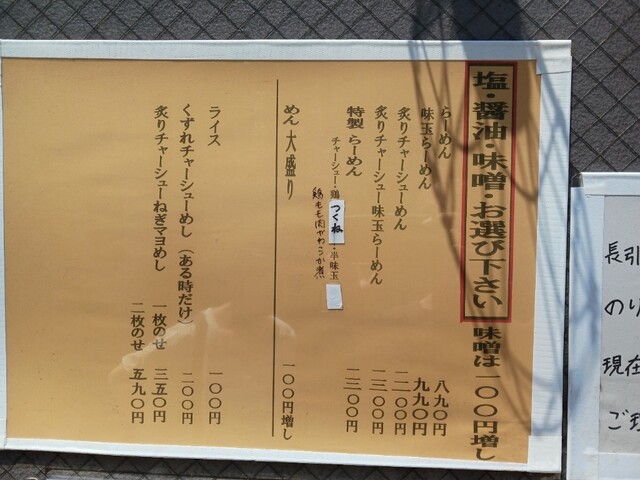 塩・醤油・味噌・お選び下さい 味噌は一〇〇円増し
らーめん 八九〇円
味玉らーめん 九九〇円
炙りチャーシューめん 一二〇〇円
炙りチャーシュー味玉らーめん 一三〇〇円
特製 らーめん 一三〇〇円
チャーシュー・鶏つくね・半味玉
鶏モモ肉がやわらか煮
めん 大盛り 一〇〇円増し
ライス 一〇〇円
くずれチャーシューめし(ある時だけ) 二〇〇円
炙りチャーシューねぎマヨめし 一枚のせ 三五〇円
二枚のせ 五九〇円
長引
のり
現在
ご理